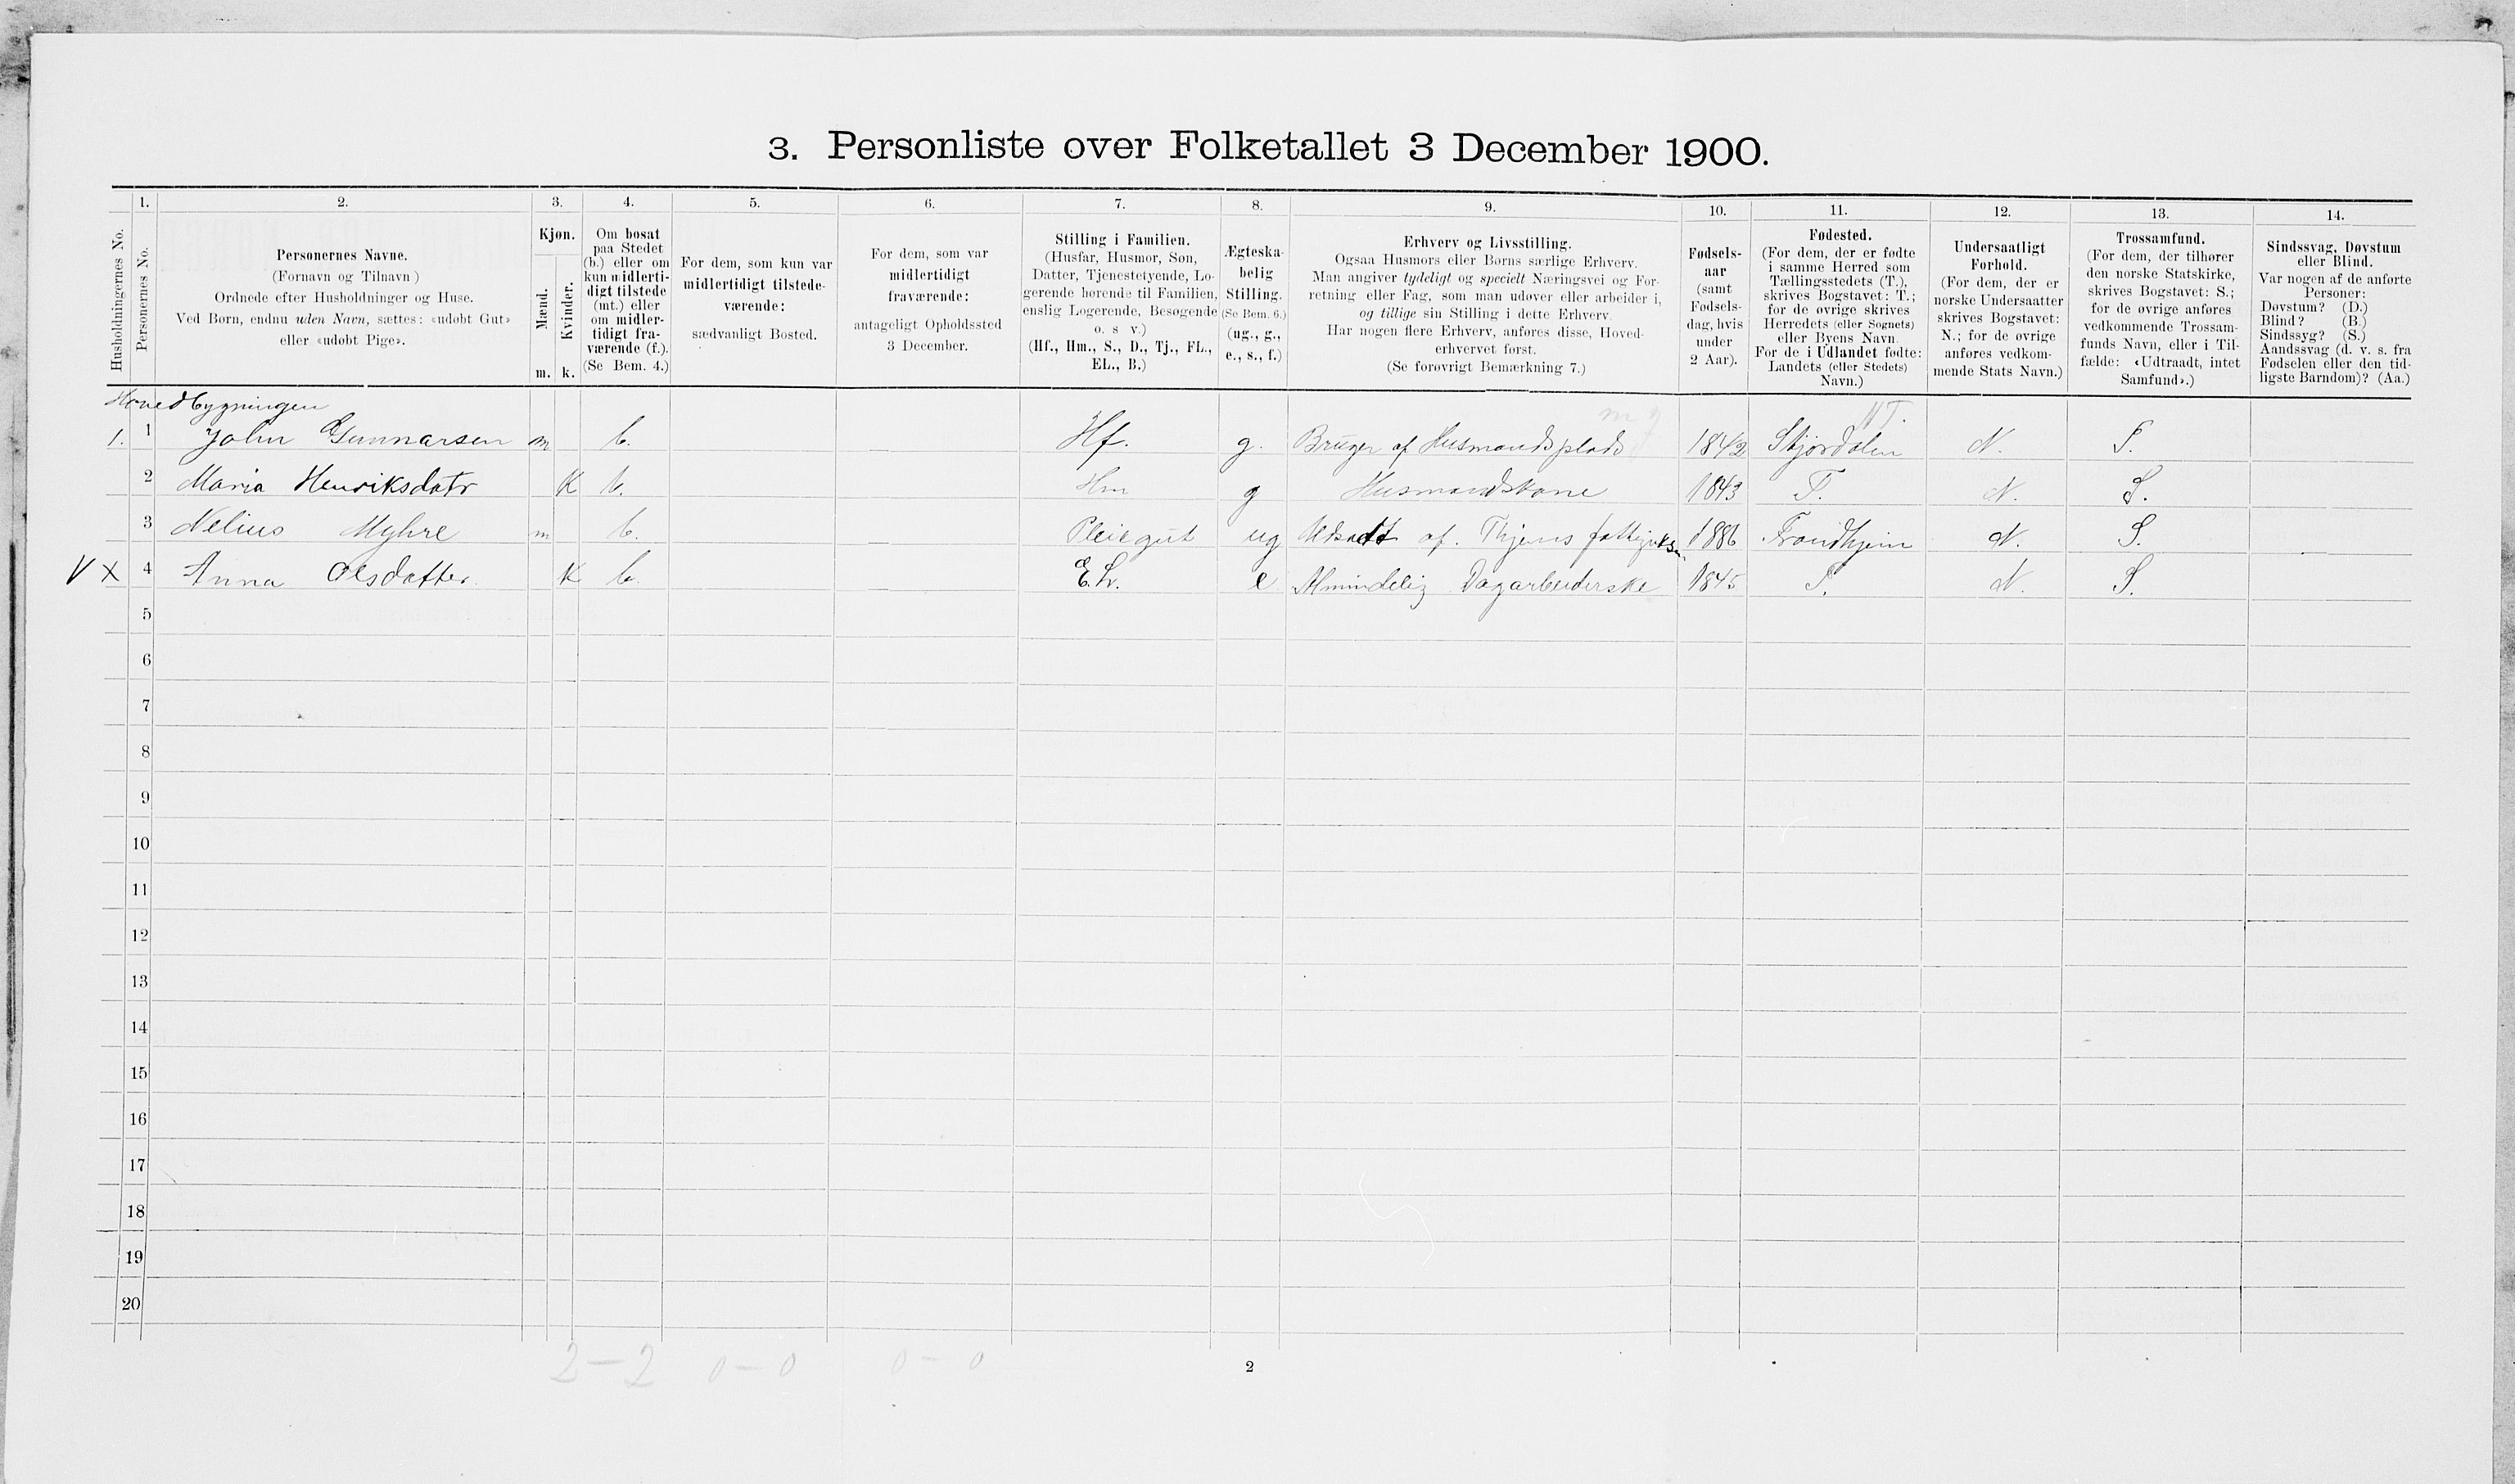 3. Personliste over Folketallet 3 December 1900.
Husholdningernes No.
1.
Personernes No.
2.
Personernes Navne.
(Fornavn og Tilnavn)
Ordnede efter Husholdninger og Huse.
Ved Børn, endnu uden Navn, sættes: «udøbt Gut»
eller «udøbt Pige».
3.
Kjøn.
Mænd.
Kvinder.
m. k.
4.
Om bosat
paa Stedet
(b.) eller om
kun midlerti-
digt tilstede
(mt.) eller
om midler-
tidigt fra-
værende (f.).
(Se Bem. 4.)
5.
For dem, som kun var
midlertidigt tilstede-
værende:
sædvanligt Bosted.
6.
For dem, som var
midlertidigt
fraværende:
antageligt Opholdssted
3 December.
7.
Stilling i Familien.
(Husfar, Husmor, Søn,
Datter, Tjenestetyende, Lo-
gerende hørende til Familien,
enslig Logerende, Besøgende
o. s v.)
(Hf., Hm., S., D., Tj., FL.,
EL., B.)
8.
Ægteska-
belig
Stilling.
(Se Bem. 6.)
(ug., g.,
e., s., f.)
9.
Erhverv og Livsstilling.
Ogsaa Husmors eller Børns særlige Erhverv.
Man angiver tydeligt og specielt Næringsvei og For-
retning eller Fag, som man udøver eller arbeider i,
og tillige sin Stilling i dette Erhverv.
Har nogen flere Erhverv, anføres disse, Hoved-
erhvervet først.
(Se forøvrigt Bemærkning 7.)
10.
Fødsels-
aar
(samt
Fødsels-
dag, hvis
under
2 Aar).
11.
Fødested.
(For dem, der er fødte
i samme Herred som
Tællingsstedets (T.),
skrives Bogstavet: T.;
for de øvrige skrives
Herredets (eller Sognets)
eller Byens Navn.
For de i Udlandet fødte:
Landets (eller Stedets)
Navn.)
12.
Undersaatligt
Forhold.
(For dem, der er
norske Undersaatter
skrives Bogstavet:
N.; for de øvrige
anføres vedkom-
mende Stats Navn.)
13.
Trossamfund.
(For dem, der tilhører
den norske Statskirke,
skrives Bogstavet: S.;
for de øvrige anføres
vedkommende Trossam-
funds Navn, eller i Til-
fælde: «Udtraadt, intet
Samfund».)
14.
Sindssvag, Døvstum
eller Blind.
Var nogen af de anførte
Personer:
Døvstum? (D.)
Blind? (B.)
Sindssyg? (S.)
Aandssvag (d. v. s. fra
Fødselen eller den tid-
ligste Barndom)? (Aa.)
Hovedbygningen
1. 1 John Gunnarsen m b. Hf. g. Bruger af Husmandsplads 1842 Stjørdalen NT. N. S.
2 Maria Henriksdatr K b. Hm g Husmandskone 1843 T. N. S.
3 Nelius Myhre m b. Pleiegut ug Udsadt af Thjems 1886 Trondhjem N. S.
V X 4 Anna Olsdatter K b. E.L. e Almindelig Dagarbeiderske 1845 T. N. S.
5
6
7
8
9
10
11
12
13
14
15
16
17
18
19
20
2 - 2 0 - 0 0 - 0
2